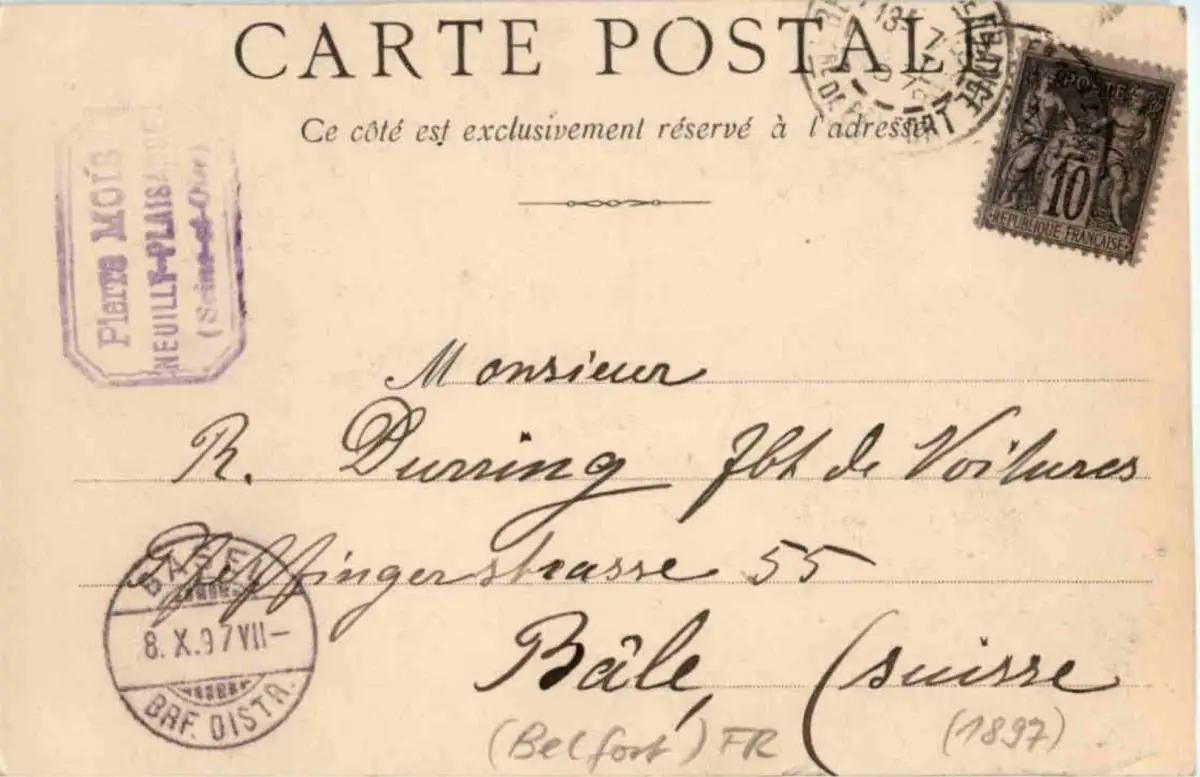 CARTE POSTALE
Ce côté est exclusivement réservé à l'adresse.
Pierre MOIS
NEUILLY-PLAISANCE
(Seine-et-Oise)
POSTES
10
REPUBLIQUE FRANÇAISE
Monsieur
R. Durring Fbt de Voitures
Pfeffingerstrasse 55
Bâle, (suisse
BASEL
8. X. 97 VII-
BRF. DISTR.
(Belfort) FR
(1897)